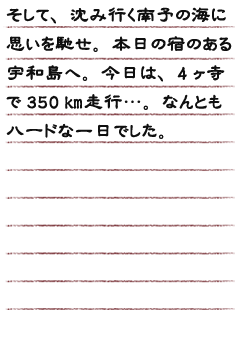 そして、沈み行く南予の海に
思いを馳せ。本日の宿のある
宇和島へ。今日は、4ヶ寺
で350km走行…。なんとも
ハードな一日でした。